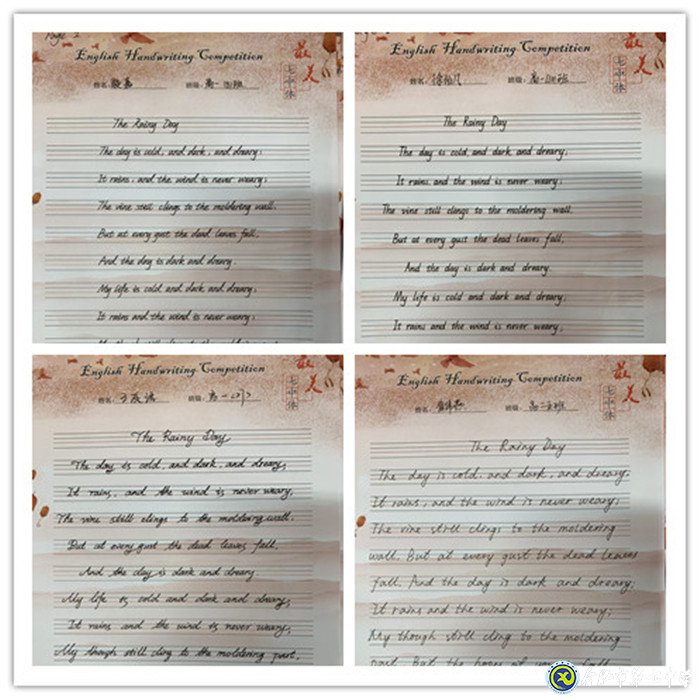 Page 2
English Handwriting Competition
最美
七中体
姓名: 班级: 高一 班
The Rainy Day
The day is cold, and dark, and dreary;
It rains, and the wind is never weary;
The vine still clings to the moldering wall.
But at every gust the dead leaves fall,
And the day is dark and dreary.
My life is cold and dark and dreary;
It rains and the wind is never weary;
English Handwriting Competition
最美
七中体
姓名: 班级: 高一 班
The Rainy Day
The day is cold, and dark, and dreary;
It rains, and the wind is never weary;
The vine still clings to the moldering wall.
But at every gust the dead leaves fall,
And the day is dark and dreary.
My life is cold and dark and dreary;
It rains and the wind is never weary;
English Handwriting Competition
最美
七中体
姓名: 班级: 高一
The Rainy Day
The day is cold, and dark, and dreary;
It rains, and the wind is never weary;
The vine still clings to the moldering wall.
But at every gust the dead leaves fall,
And the day is dark and dreary.
My life is cold and dark and dreary;
It rains and the wind is never weary;
My though still cling to the moldering past,
English Handwriting Competition
最美
七中体
姓名: 班级: 高二 班
The Rainy Day
The day is cold, and dark, and dreary,
It rains, and the wind is never weary;
The vine still clings to the moldering
wall. But at every gust the dead leaves
fall. And the day is dark and dreary;
It rains and the wind is never weary;
My though still cling to the moldering
past. But the hopes of fall